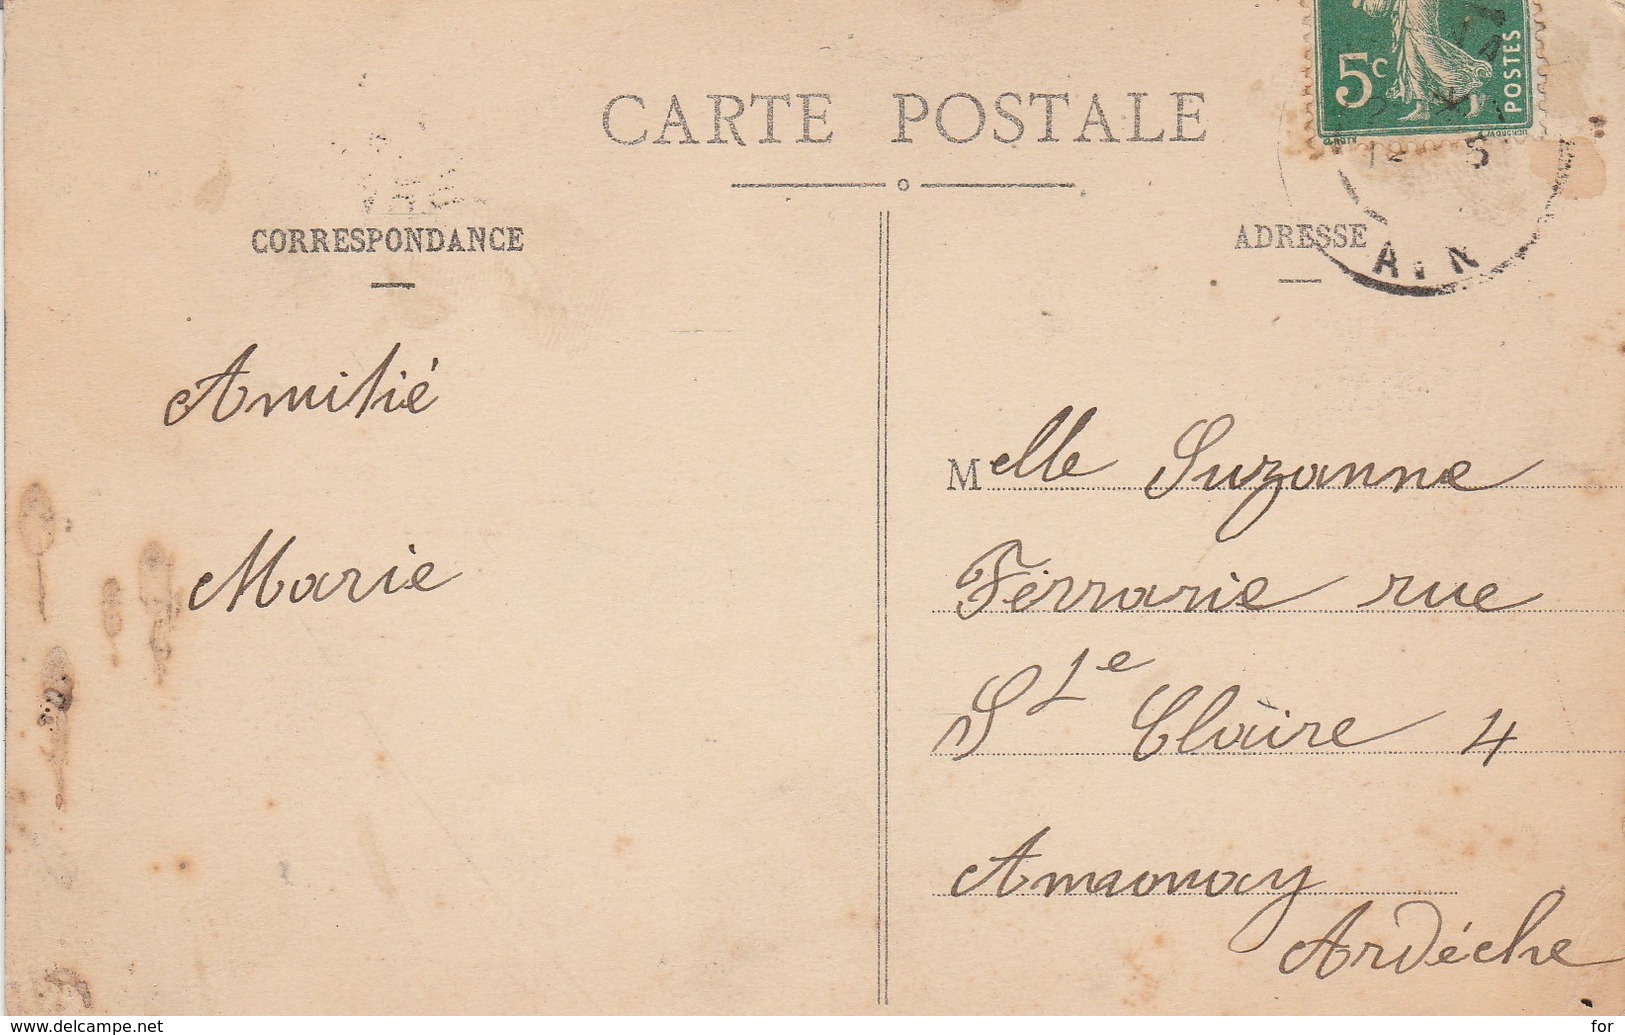 CARTE POSTALE
5c
POSTES
12 5
AIN
CORRESPONDANCE
ADRESSE
Amitié
Marie
Melle Suzanne
Ferrarie rue
Ste Claire 4
Annonay
Ardèche
www.delcampe.net
for